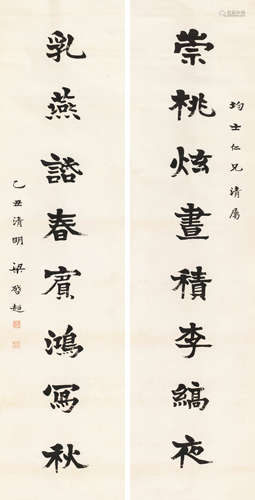 均士仁兄清屬
崇桃炫晝積李縞夜
乳燕諮春賓鴻寫秋
乙丑清明 梁啓超